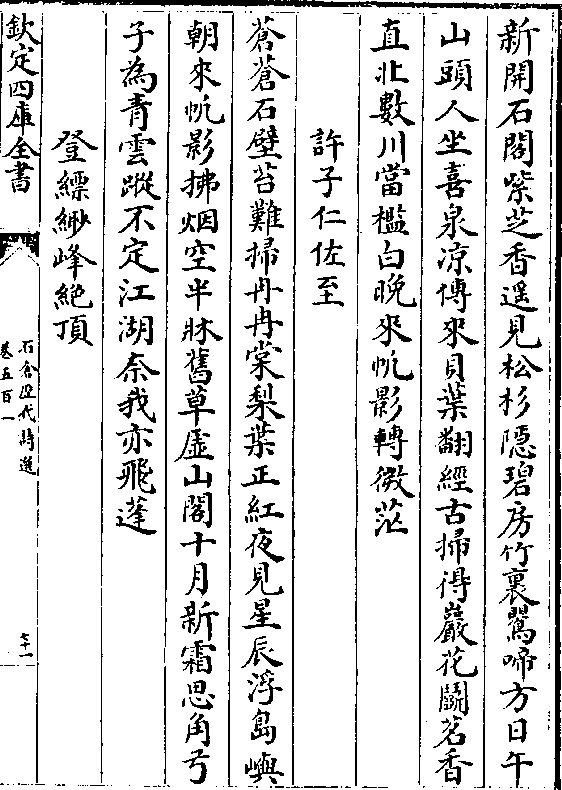 新開石閣紫芝香遥見松杉隠碧房竹裏鶯啼方日午
山頭人坐喜泉凉傳來貝葉翻經古掃得巖花鬬茗香
直北數川當檻白晩來帆影轉微茫
許子仁佐至
蒼蒼石壁苔難掃冉冉棠梨葉正紅夜見星辰浮島嶼
朝來帆影拂烟空半牀舊草虚山閣十月新霜思角弓
子為青雲蹤不定江湖奈我亦飛蓬
登縹緲峰絶頂
欽定四庫全書
石倉歴代詩選
卷五百一
七十一